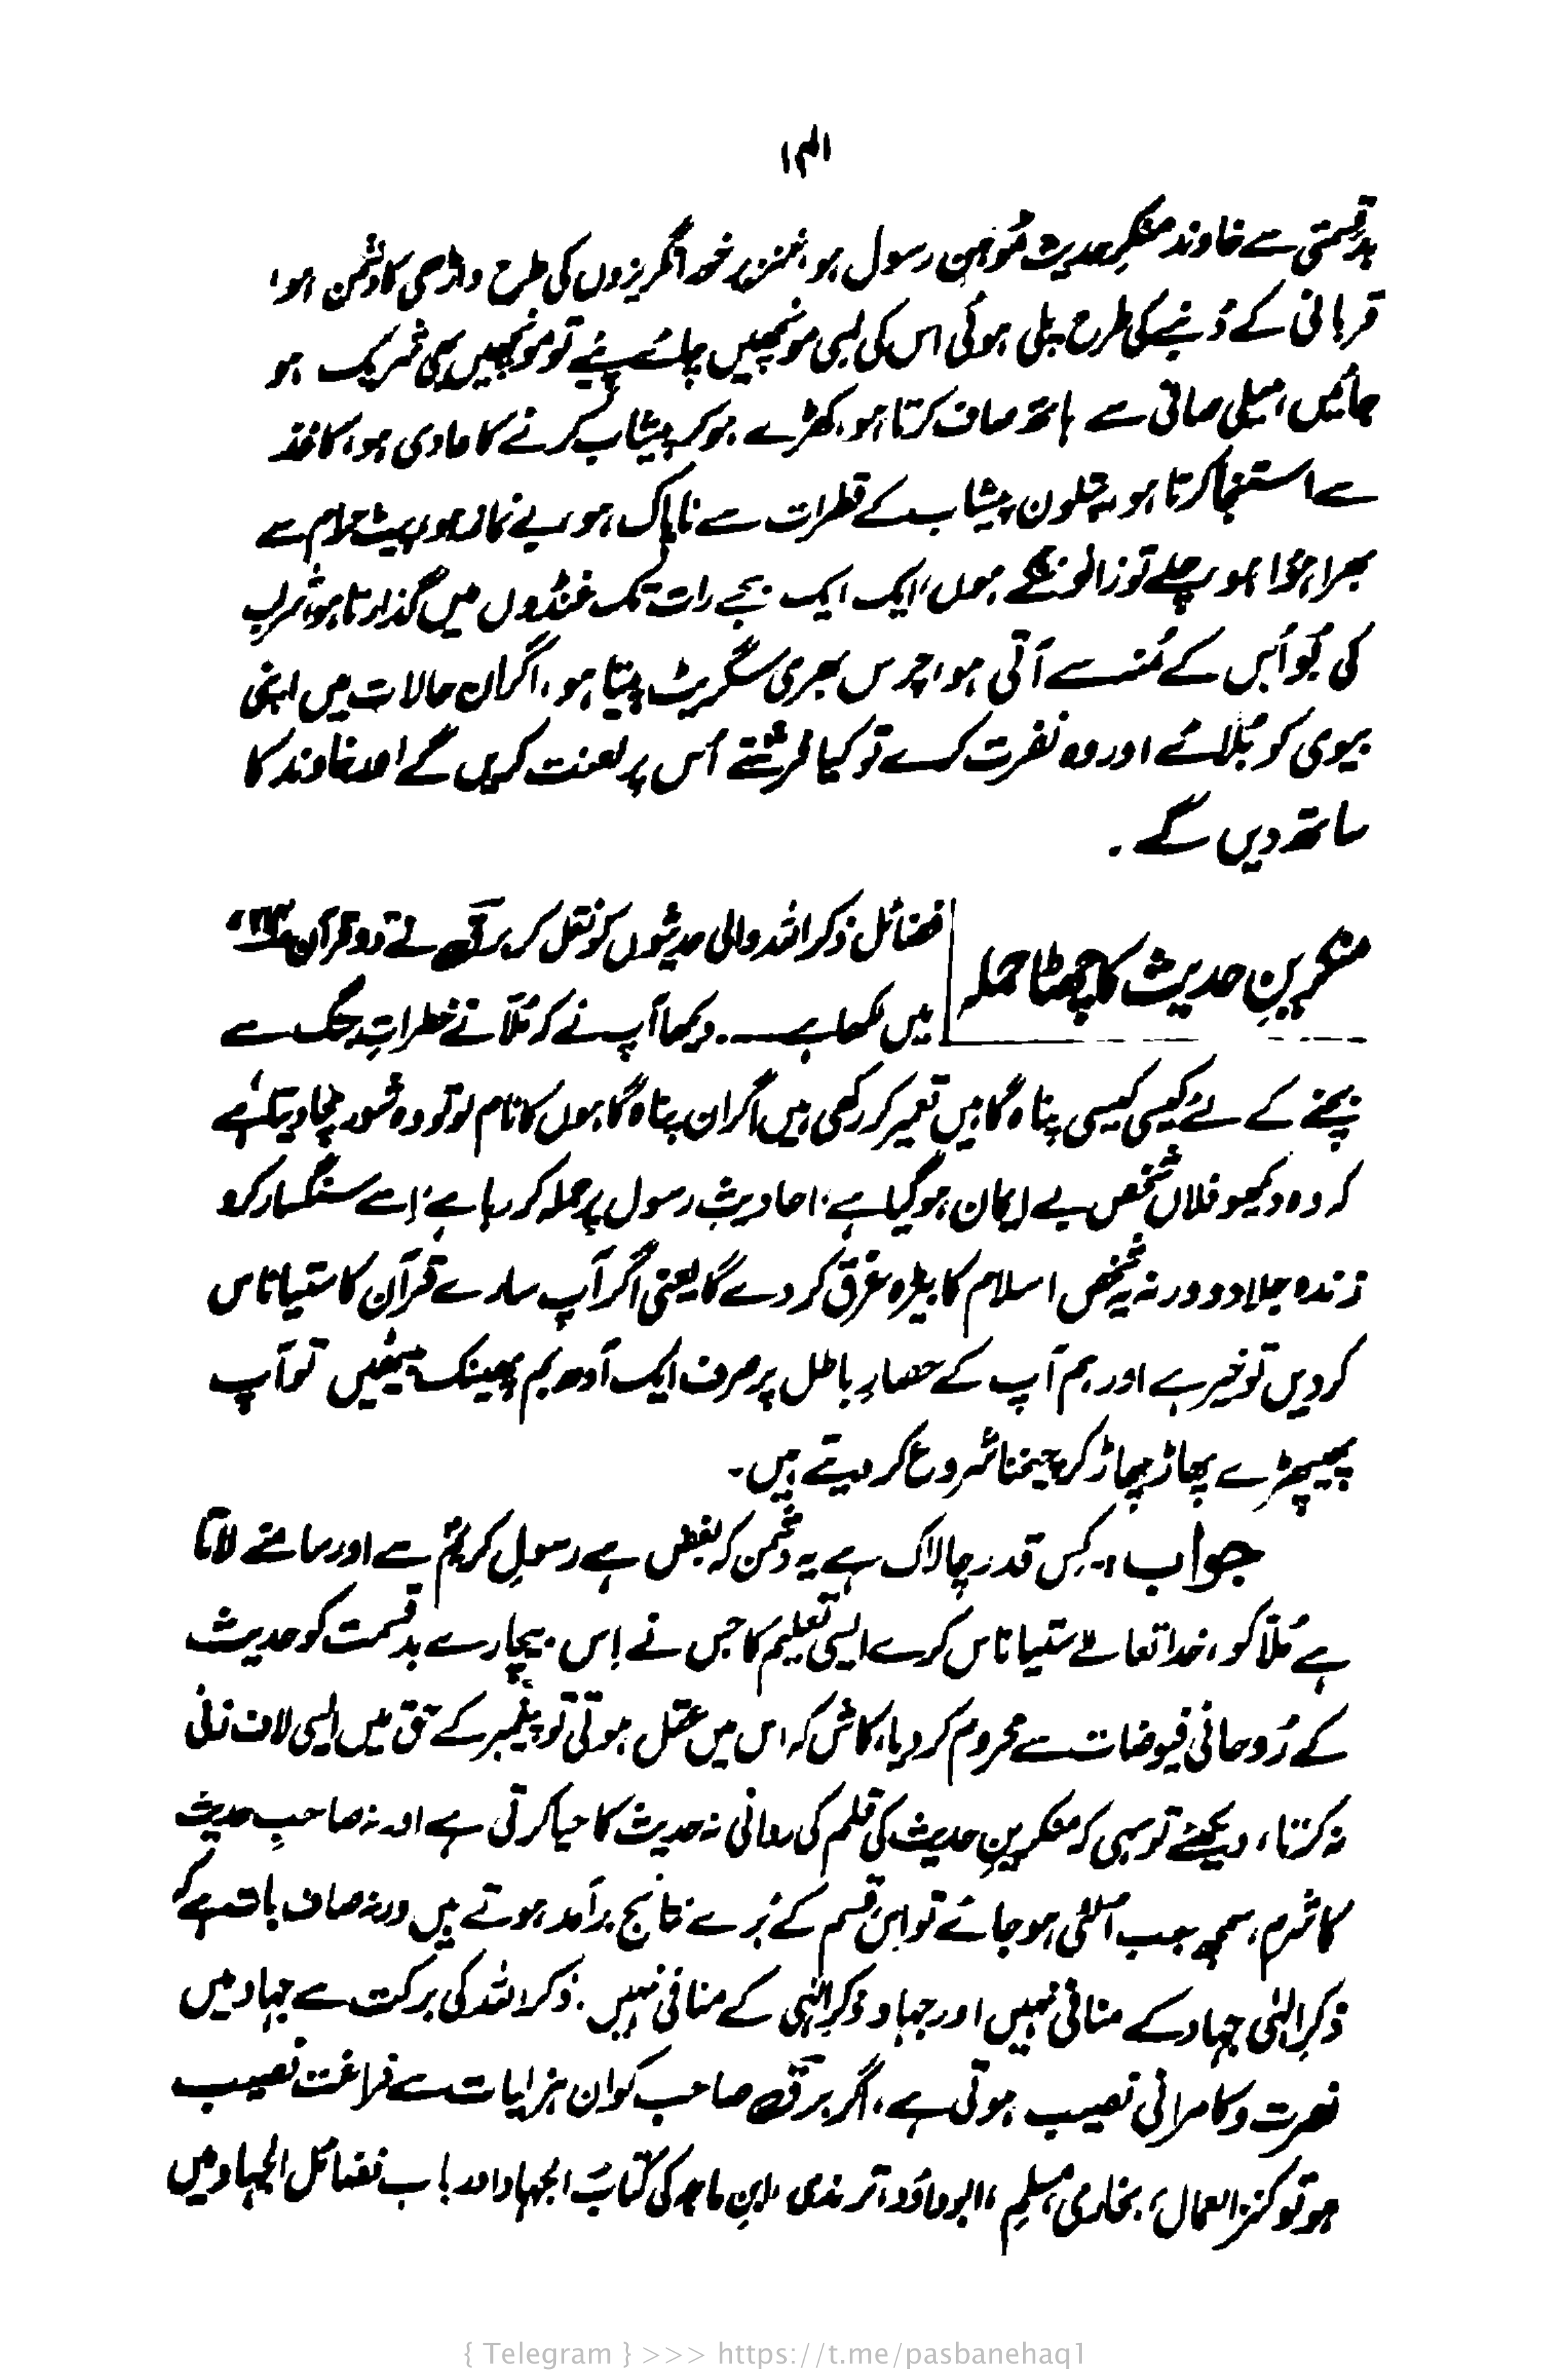 ۱۴۱
بدقسمتی سے خاوند منکرِ حدیث مُوہنِ رسول ہو، خنزیر خور انگریزوں کی طرح داڑھی کا دشمن ہو،
قربانی کے دُنبے کی طرح پلی ہوئی اس کی لمبی مونچھیں چائے پئے تو مونچھیں بھی شریک ہو
جائیں، میلی صافی سے ہاتھ صاف کرتا ہو، کھڑے ہو کر پیشاب کرنے کا عادی ہو، کاغذ
سے استنجا کرتا ہو، پتلون پیشاب کے قطرات سے ناپاک ہو، بے نماز ہو، پیٹ حرام سے
بھرا ہؤا ہو، چلے تو زانو ننگے ہوں، ایک ایک بجے رات تک غنڈوں میں گذارتا ہو، شراب
کی بُو اُس کے مُنہ سے آتی ہو، چرس بھری سگریٹ پیتا ہو، اگر ان حالات میں اپنی
بیوی کو بُلائے اور وہ نفرت کرے تو کیا فرشتے اُس پر لعنت کریں گے اور خاوند کا
ساتھ دیں گے۔
منکرینِ حدیث کا چھٹا حملہ
فضائل ذکر اللہ والی حدیثوں کو نقل کر برق نے دو قرآن
میں لکھا ہے ۔۔۔ دیکھا آپ نے کہ مُلّا نے خطراتِ جنگ سے
بچنے کے لئے کیسی کیسی پناہ گاہیں تعمیر کر رکھی ہیں اگر ان پناہ گاہوں کا نام لو تو وہ شور مچا دیتا ہے
کہ وہ دیکھو فلاں شخص بے ایمان ہو گیا ہے، احادیثِ رسول پر حملہ کر رہا ہے، اسے سنگسار کرو
زندہ جلا دو ورنہ یہ شخص اسلام کا بیڑہ غرق کر دے گا یعنی اگر آپ سارے قرآن کا ستیاناس
کر دیں تو خیر ہے اور ہم آپ کے حصارِ باطل پر صرف ایک آدھ بم پھینک بیٹھیں تو آپ
پھیپھڑے پھاڑ پھاڑ کر چیخنا شروع کر دیتے ہیں۔
جواب :۔ کِس قدر چالاک ہے یہ دشمن کہ بغض ہے رسولِ کریمؐ سے اور سامنے لاتا
ہے مُلّا کو، خدا تعالےٰ ستیاناس کرے ایسی تعلیم کا جس نے اِس بیچارے بدقسمت کو حدیث
کے رُوحانی فیوضات سے محروم کر دیا، کاش کہ اس میں عقل ہوتی تو پیغمبر کے حق میں ایسی لاف زنی
نہ کرتا، دیکھئے تو سہی کہ منکرینِ حدیث کی قلم کی روانی نہ حدیث کا حیا کرتی ہے اور نہ صاحبِ حدیث
کا شرم، سمجھ جب اُلٹی ہو جائے تو اِس قسم کے بُرے نتائج برآمد ہوتے ہیں ورنہ صاف بات ہے کہ
ذکرِ الٰہی جہاد کے منافی نہیں اور جہاد ذکرِ الٰہی کے منافی نہیں۔ ذکر اللہ کی برکت سے جہاد میں
نصرت و کامرانی نصیب ہوتی ہے، اگر برق صاحب کو ان ہزلیات سے فراغت نصیب
ہو تو کنز العمال، بخاری، مسلم، ابوداؤد، ترمذی، ابنِ ماجہ کی کتابُ الجہاد اور باب فضائل الجہاد میں
{ Telegram } >>> https://t.me/pasbanehaq1